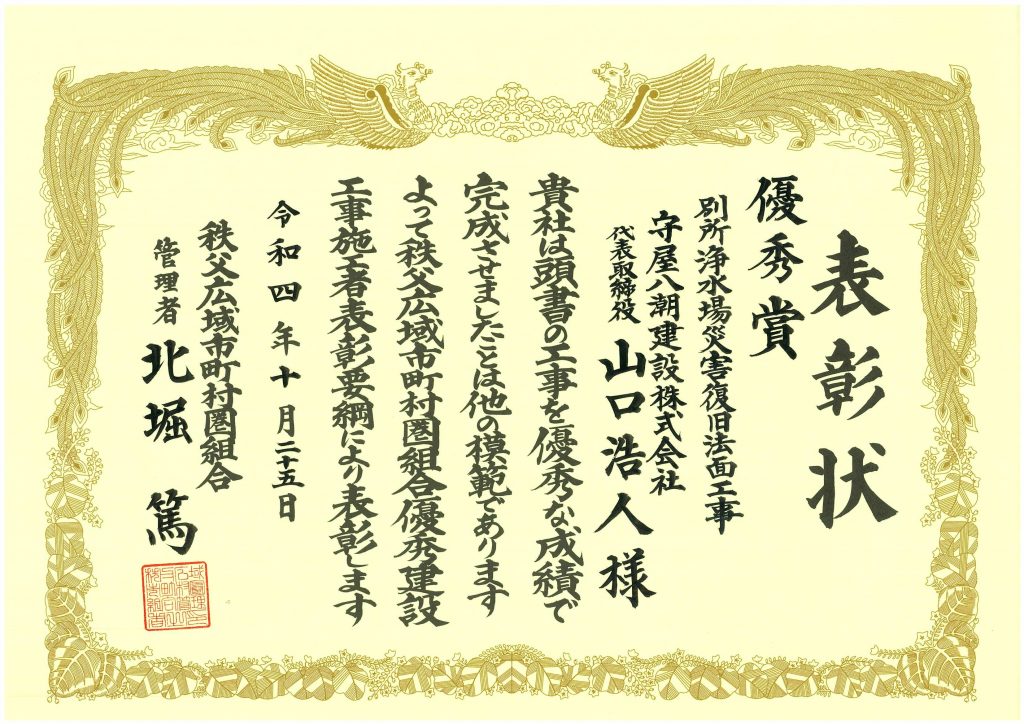 表彰状
優秀賞
別所浄水場災害復旧法面工事
守屋八潮建設株式会社
代表取締役 山口浩人様
貴社は頭書の工事を優秀な成績で
完成させましたことは他の模範であります
よって秩父広域市町村圏組合優秀建設
工事施工者表彰要綱により表彰します
令和四年十月二十五日
秩父広域市町村圏組合
管理者 北堀篤